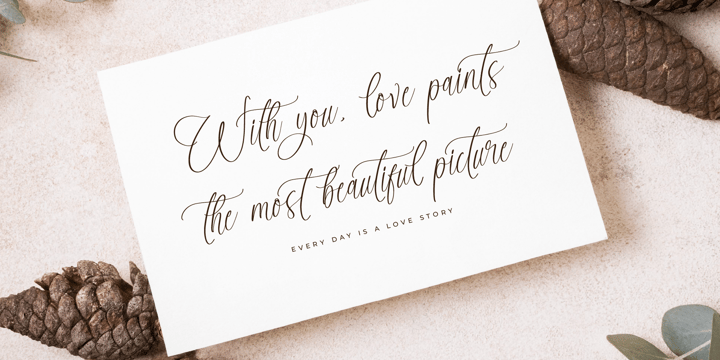 With you, love paints
the most beautiful picture
EVERY DAY IS A LOVE STORY